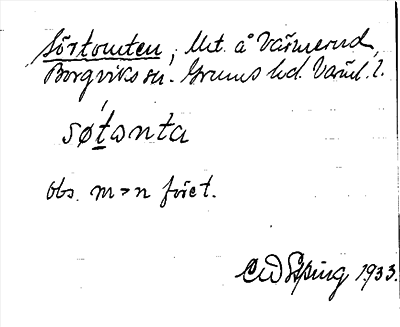 Sörtomten, Utt. å Värmerud,
Borgviks sn. Grums hd. Värml. l.
søtonta
obs. m > n föret.
1933.